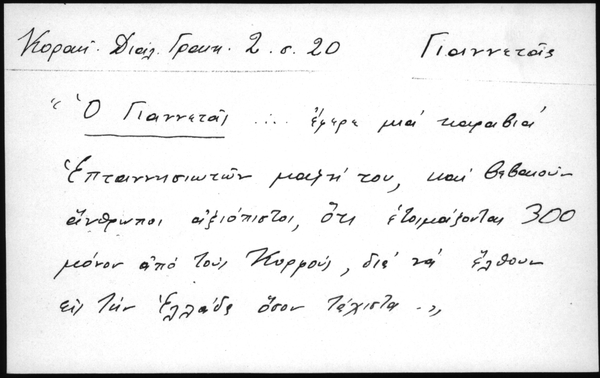 Κοραή. Διάλ. Γραικ. 2. σ. 20 Γιαννετᾶς
“Ὁ Γιαννετᾶς .... ἔφερε μιά καραβιά
Ἑπταννησιωτῶν μαζή του, καί βεβαιοῦν
ἄνθρωποι ἀξιόπιστοι, ὅτι ἑτοιμάζονται 300
μόνον ἀπό τούς Κορφούς, διά νά ἔλθουν
εἰς τήν Ἑλλάδα ὅσον τάχιστα.„